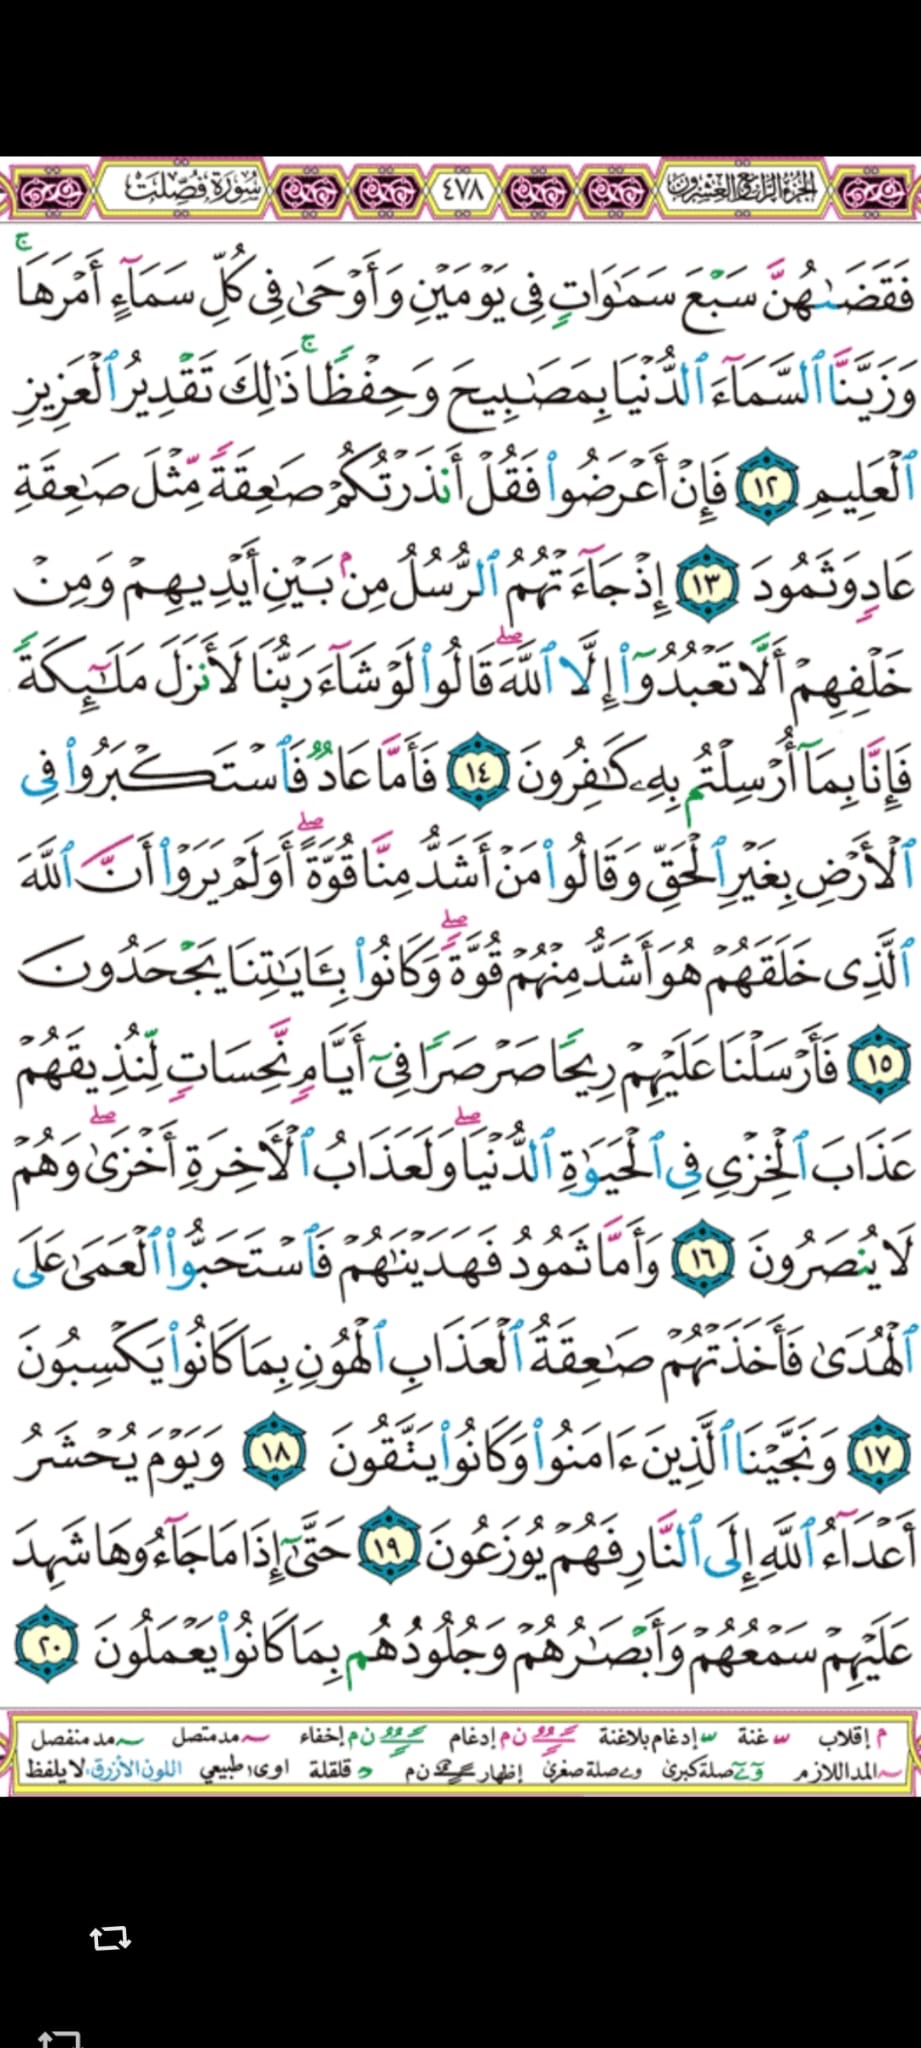 الجزء الرابع والعشرون ٤٧٨ سورة فصلت
فَقَضَىٰهُنَّ سَبْعَ سَمَٰوَاتٖ فِي يَوْمَيْنِ وَأَوْحَىٰ فِي كُلِّ سَمَآءٍ أَمْرَهَاۚ
وَزَيَّنَّا ٱلسَّمَآءَ ٱلدُّنْيَا بِمَصَٰبِيحَ وَحِفْظٗاۚ ذَٰلِكَ تَقْدِيرُ ٱلْعَزِيزِ
ٱلْعَلِيمِ ١٢ فَإِنْ أَعْرَضُوا۟ فَقُلْ أَنذَرْتُكُمْ صَٰعِقَةٗ مِّثْلَ صَٰعِقَةِ
عَادٖ وَثَمُودَ ١٣ إِذْ جَآءَتْهُمُ ٱلرُّسُلُ مِنۢ بَيْنِ أَيْدِيهِمْ وَمِنْ
خَلْفِهِمْ أَلَّا تَعْبُدُوٓا۟ إِلَّا ٱللَّهَۖ قَالُوا۟ لَوْ شَآءَ رَبُّنَا لَأَنزَلَ مَلَٰٓئِكَةٗ
فَإِنَّا بِمَآ أُرْسِلْتُم بِهِۦ كَٰفِرُونَ ١٤ فَأَمَّا عَادٞ فَٱسْتَكْبَرُوا۟ فِي
ٱلْأَرْضِ بِغَيْرِ ٱلْحَقِّ وَقَالُوا۟ مَنْ أَشَدُّ مِنَّا قُوَّةًۖ أَوَلَمْ يَرَوْا۟ أَنَّ ٱللَّهَ
ٱلَّذِي خَلَقَهُمْ هُوَ أَشَدُّ مِنْهُمْ قُوَّةٗۖ وَكَانُوا۟ بِـَٔايَٰتِنَا يَجْحَدُونَ
١٥ فَأَرْسَلْنَا عَلَيْهِمْ رِيحٗا صَرْصَرٗا فِيٓ أَيَّامٖ نَّحِسَاتٖ لِّنُذِيقَهُمْ
عَذَابَ ٱلْخِزْيِ فِي ٱلْحَيَوٰةِ ٱلدُّنْيَاۖ وَلَعَذَابُ ٱلْأَخِرَةِ أَخْزَىٰۖ وَهُمْ
لَا يُنصَرُونَ ١٦ وَأَمَّا ثَمُودُ فَهَدَيْنَٰهُمْ فَٱسْتَحَبُّوا۟ ٱلْعَمَىٰ عَلَى
ٱلْهُدَىٰ فَأَخَذَتْهُمْ صَٰعِقَةُ ٱلْعَذَابِ ٱلْهُونِ بِمَا كَانُوا۟ يَكْسِبُونَ
١٧ وَنَجَّيْنَا ٱلَّذِينَ ءَامَنُوا۟ وَكَانُوا۟ يَتَّقُونَ ١٨ وَيَوْمَ يُحْشَرُ
أَعْدَآءُ ٱللَّهِ إِلَى ٱلنَّارِ فَهُمْ يُوزَعُونَ ١٩ حَتَّىٰٓ إِذَا مَا جَآءُوهَا شَهِدَ
عَلَيْهِمْ سَمْعُهُمْ وَأَبْصَٰرُهُمْ وَجُلُودُهُم بِمَا كَانُوا۟ يَعْمَلُونَ ٢٠
م إقلاب غنة إدغام بلاغنة ن م إدغام ن م إخفاء مد متصل مد منفصل
المد اللازم صلة كبرى صلة صغرى إظهار ن م قلقلة اوى طبيعي اللون الأزرق لا يلفظ